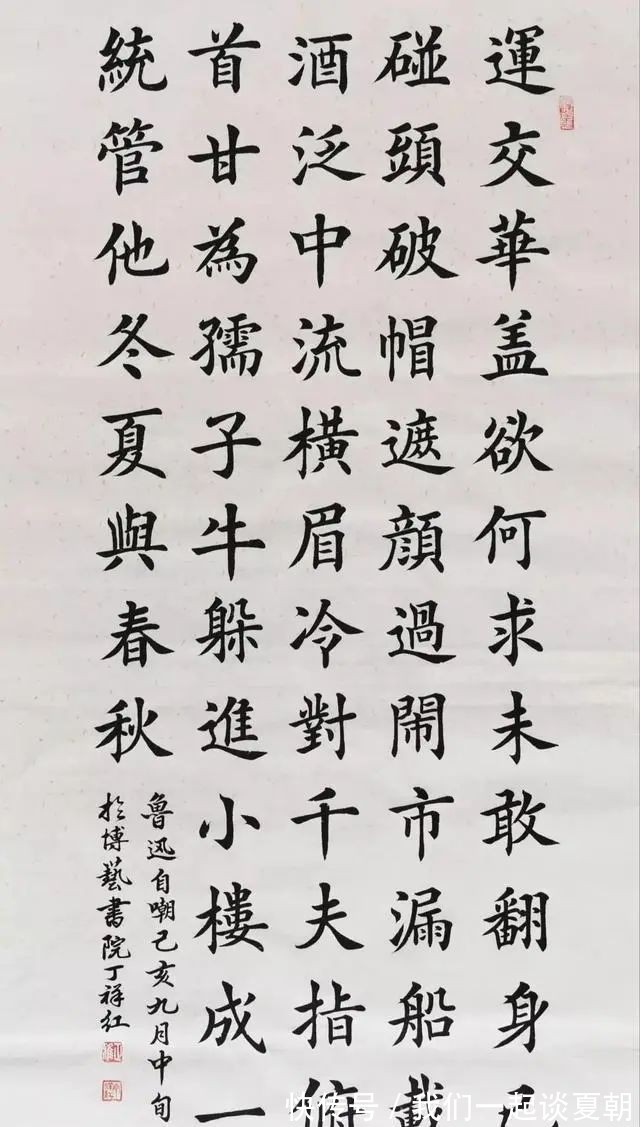 運交華盖欲何求未敢翻身已
碰頭破帽遮顏過鬧市漏船載
酒泛中流橫眉冷對千夫指俯
首甘為孺子牛躲進小樓成一
統管他冬夏與春秋
魯迅自嘲己亥九月中旬
於博藝書院丁祥红
快传号/我们一起谈夏朝